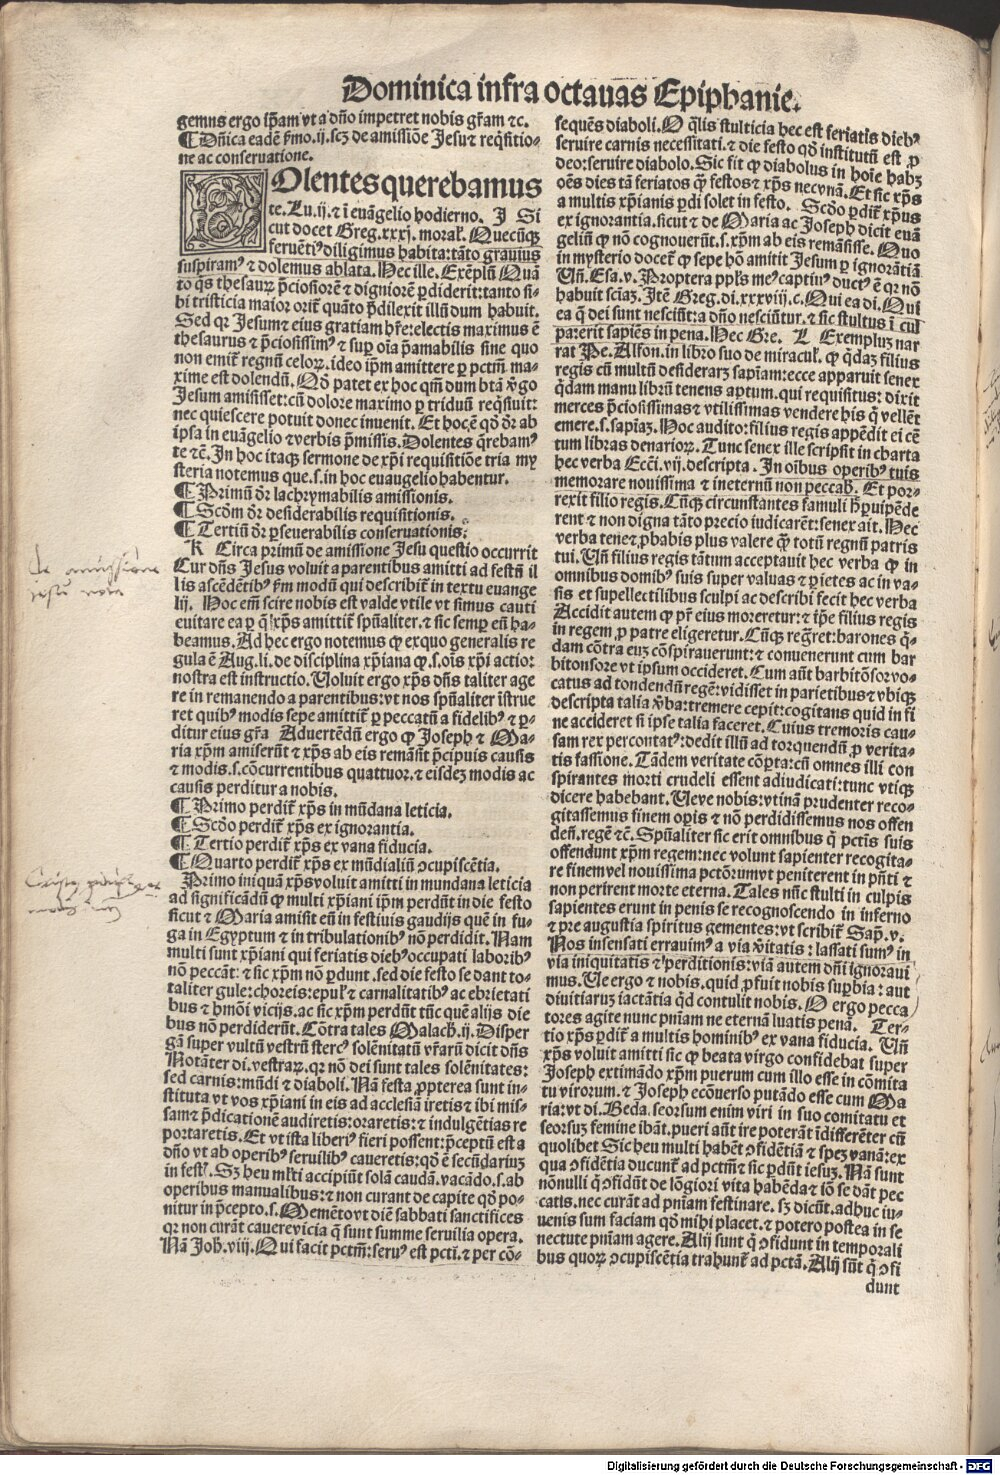 Dominica infra octauas Epiphanie.
gemus ergo ip̄am vt a dn̄o impetret nobis gr̄am ⁊c.
¶ Dn̄ica eadē ẜmo .ij. scꝫ de amissiōe Jesu ⁊ reqͥsitio-
ne ac conseruatione.
DOlentes querebamus
te. Lu. ij. ⁊ ī euāgelio hodierno. J Si
cut docet Greg. xxxj. moraƚ. Quecūqꝫ
feruētiꝰ diligimus habita: tāto grauius
suspiramꝰ ⁊ dolemus ablata. Hec ille. Exēplū Quā
to qͥs thesauꝝ p̄ciosiorē ⁊ digniorē ꝑdiderit: tanto si-
bi tristicia maior orit̄ quāto p̄dilexit illū dum habuit.
Sed qꝛ Jesum ⁊ eius gratiam hr̄e: electis maximus ē
thesaurus ⁊ p̄ciosissimꝰ ⁊ suꝑ oīa p̄amabilis sine quo
non emit̄ regnū celoꝝ. ideo ip̄m amittere ꝑ pctm̄ ma-
xime est dolendū. Qđ patet ex hoc qm̄ dum btā v̄go
Jesum amisisset: cū dolore maximo ꝑ triduū reqͥsiuit:
nec quiescere potuit donec inuenit. Et hoc ē qđ dr̄ ab
ipsa in euāgelio ⁊ verbis p̄missis. Dolentes q̄rebamꝰ
te ⁊c̄. In hoc itaqꝫ sermone de xp̄i requisitiōe tria my
steria notemus que .s. in hoc euaugelio habentur.
¶ Primū dr̄ lachrymabilis amissionis.
¶ Scdm̄ dr̄ desiderabilis requisitionis.
¶ Tertiū dr̄ ꝑseuerabilis conseruationis.
K Circa primū de amissione Jesu questio occurrit
Cur dn̄s Jesus voluit a parentibus amitti ad festū il
lis ascēdētibꝰ ẜm modū qui describit̄ in textu euange
lij. Hoc em̄ scire nobis est valde vtile vt simus cauti
euitare ea ꝑ q̄ xp̄s amittit̄ spūaliter. ⁊ sic semꝑ eū ha-
beamus. Ad hec ergo notemus ꝙ ex quo generalis re
gula ē Aug. li. de disciplina xp̄iana ꝙ .s. oīs xp̄i actio:
nostra est instructio. Voluit ergo xp̄s dn̄s taliter age
re in remanendo a parentibus: vt nos spūaliter īstrue
ret quibꝰ modis sepe amittit̄ ꝑ peccatū a fidelibꝰ ⁊ ꝑ-
ditur eius gr̄a Aduertēdū ergo ꝙ Joseph ⁊ Ma-
ria xp̄m amiserūt ⁊ xp̄s ab eis remāsit p̄cipuis causis
⁊ modis .s. cōcurrentibus quattuor. ⁊ eisdeꝫ modis ac
causis perditur a nobis.
¶ Primo perdit̄ xp̄s in mūdana leticia.
¶ Scđo perdit̄ xp̄s ex ignorantia.
¶ Tertio perdit̄ xp̄s ex vana fiducia.
¶ Quarto perdit̄ xp̄s ex mūdialiū ɔcupiscētia.
Primo iniquā xp̄s voluit amitti in mundana leticia
ad significādū ꝙ multi xp̄iani ip̄m perdūt in die festo
sicut ⁊ Maria amisit eū in festiuis gaudijs quē in fu-
ga in Egyptum ⁊ in tribulationibꝰ nō perdidit. Nam
multi sunt xp̄iani qui feriatis diebꝰ occupati laboribꝰ
nō peccāt: ⁊ sic xp̄m nō ꝑdunt. sed die festo se dant to-
taliter gule: choreis: epuƚ ⁊ carnalitatibꝰ ac ebrietati
bus ⁊ hmōi vicijs. ac sic xp̄m perdūt tūc quē alijs die
bus nō perdiderūt. Cōtra tales Malach. ij. Disper
gā super vultū vestrū stercꝰ solēnitatū vr̄arū dicit dn̄s
Notāter di. vestraꝝ. qꝛ nō dei sunt tales solēnitates:
sed carnis: mūdi ⁊ diaboli. Nā festa ꝓpterea sunt in-
stituta vt vos xp̄iani in eis ad acclesiā iretis ⁊ ibi mis-
sam ⁊ p̄dicationē audiretis: oraretis: ⁊ indulgētias re
portaretis. Et vt ista liberiꝰ fieri possent: p̄ceptū est a
dn̄o vt ab operibꝰ seruilibꝰ caueretis: qđ ē secūdariuꝫ
in festꝭ. Sꝫ heu ml̄ti accipiūt solā caudā. vacādo .s. ab
operibus manualibus: ⁊ non curant de capite qđ po-
nitur in p̄cepto .s. Memēto vt diē sabbati sanctifices
qꝛ non curāt cauere vicia q̄ sunt summe seruilia opera.
Nā Joh. viii. Qui facit pctm̄: seruꝰ est pcti. ⁊ per cō-
sequēs diaboli. O qͣlis stulticia hec est feriatis diebꝰ
seruire carnis necessitati. ⁊ die festo qđ institutū est ꝓ
deo: seruire diabolo. Sic fit ꝙ diabolus in hoīe habꝫ
oēs dies tā feriatos qͣꝫ festos ⁊ xp̄s nec vnā. Et sic xp̄s
a multis xp̄ianis ꝑdi solet in festo. Scđo ꝑdit̄ xp̄us
ex ignorantia. sicut ⁊ de Maria ac Joseph dicit euā
geliū ꝙ nō cognouerūt .s. xp̄m ab eis remāsisse. Quo
in mysterio docet̄ ꝙ sepe hō amitit Jesum ꝑ ignorātiā
Vn̄. Esa. v. Propterea ppl̄s meꝰ captiuꝰ ductꝰ ē qꝛ nō
habuit sciāꝫ. Itē Greg. di. xxxviij. c. Qui ea di. Qui
ea q̄ dei sunt nesciūt: a dn̄o nesciūtur. ⁊ sic stultus ī cul
pa: erit sapiēs in pena. Hec Gre. L Exempluꝫ nar
rat Pe. Alfon. in libro suo de miracuƚ. ꝙ qͥdaꝫ filius
regis cū multū desideraꝝ sapīam: ecce apparuit senex
qͥdam manu librū tenens aptum. qui requisitus: dixit
merces p̄ciosissimas ⁊ vtilissimas vendere his q̄ vellēt
emere .s. sapīaꝫ. Hoc audito: filius regis appēdit ei cē
tum libras denarioꝝ. Tunc senex ille scripsit in charta
hec verba Ecci. vij. descripta. In oībus operibꝰ tuis
memorare nouissima ⁊ ineternū non peccab̄. Et por-
rexit filio regis. Cūqꝫ circunstantes famuli ꝑuipēde
rent ⁊ non digna tāto precio iudicarēt: senex ait. Hec
verba tene. ꝓbabis plus valere qͣꝫ totū regnū patris
tui. Vn̄ filius regis tātum acceptauit hec verba ꝙ in
omnibus domibꝰ suis super valuas ⁊ ꝑietes ac in va-
sis et supellectilibus sculpi ac describi fecit hec verba
Accidit autem ꝙ pr̄ eius moreretur: ⁊ ip̄e filius regis
in regem ꝓ patre eligeretur. Cūqꝫ regͣret: barones qͥ-
dam cōtra euꝫ cōspirauerunt: ⁊ conuenerunt cum bar
bitonsore vt ipsum occideret. Cum aūt barbitōsor vo-
catus ad tondendū regē: vidisset in parietibus ⁊ vbiqꝫ
descripta talia v̄ba: tremere cepit: cogitans quid in fi
ne accideret si ipse talia faceret. Cuius tremoris cau-
sam rex percontatꝰ: dedit illū ad torquendū ꝓ verita-
tis fassione. Tādem veritate cōꝑta: cū omnes illi con
spirantes morti crudeli essent adiudicati: tunc vtiqꝫ
dicere habebant. Ue ve nobis: vtinā prudenter reco-
gitassemus finem opis ⁊ nō perdidissemus nos offen
den̄. regē ⁊c̄. Spūaliter sic erit omnibus q̄ pctīs suis
offendunt xp̄m regem: nec volunt sapienter recogita-
re finem vel nouissima pctōrum vt peniterent in pn̄ti ⁊
non perirent morte eterna. Tales nūc stulti in culpis
sapientes erunt in penis se recognoscendo in inferno
⁊ pre augustia spiritus gementes: vt scribit̄ Sap̄. v.
Nos insensati errauimꝰ a via v̄itatis: lassati sumꝰ in
via iniquitatis ⁊ perditionis: viā autem dn̄i ignoraui
mus. Ue ergo ⁊ nobis. quid ꝓfuit nobis suꝑbia: aut
diuitiaruꝫ iactātia qͥd contulit nobis. O ergo pecca
tores agite nunc pn̄iam ne eternā luatis penā. Ter-
tio xp̄s ꝑdit̄ a multis hominibꝰ ex vana fiducia. Vn̄
xp̄s voluit amitti sic ꝙ beata virgo confidebat super
Joseph extimādo xp̄m puerum cum illo esse in cōmita
tu virorum. ⁊ Joseph ecōuerso putādo esse cum Ma
ria: vt di. Beda. seorsum enim viri in suo comitatu et
seorsuꝫ femine ibāt. pueri aūt ire poterāt īdifferēter cū
quolibet Sic heu multi habēt ɔfidētiā ⁊ speꝫ vanā: ex
qua ɔfidētia ducunt̄ ad pctm̄ ⁊ sic ꝑdūt iesuꝫ. Nā sunt
nōnulli q̄ ɔfidūt de lōgiori vita habēda ⁊ iō se dāt pec
catis. nec curāt ad pn̄iam festinare. sꝫ dicūt. adhuc iu-
uenis sum faciam qđ mihi placet. ⁊ potero postea in se
nectute pn̄iam agere. Alij sunt q̄ ɔfidunt in temporali
bus quoꝝ ɔcupiscētia trahunt̄ ad pctā. Alij sūt q̄ ɔfi
dunt
de amissione
iesu nota
Digitalisierung gefördert durch die Deutsche Forschungsgemeinschaft - DFG